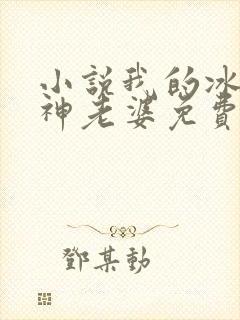 小説我的冰
神老婆免費
鄧某勳